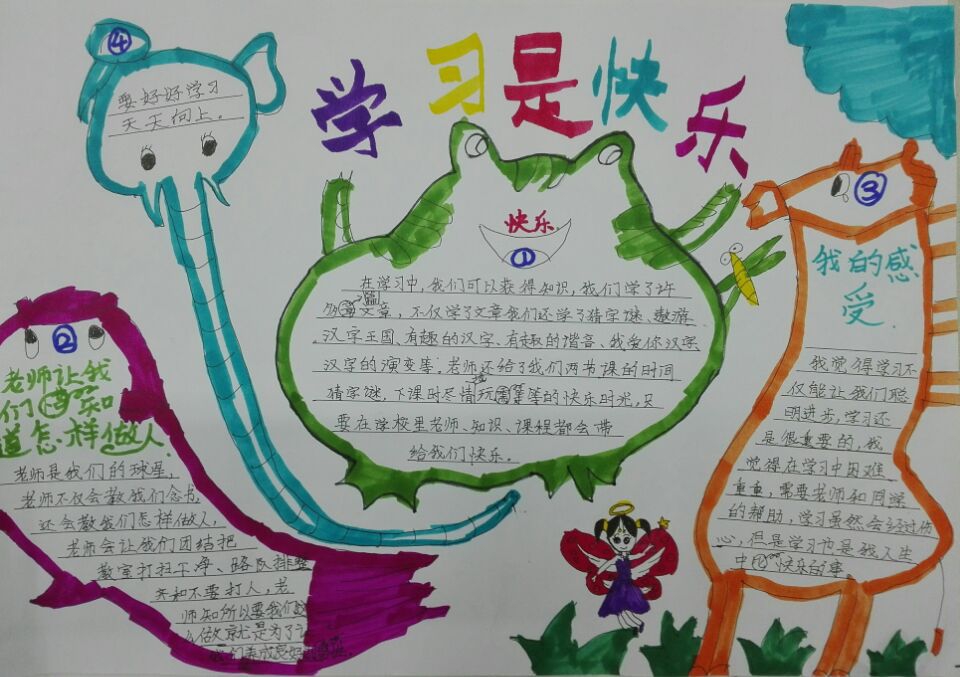 学习是快乐
快乐
①
在学习中,我们可以获得知识,我们学了许
多篇文章,不仅学了文章我们还学了猜字谜、遨游
汉字王国、有趣的汉字、有趣的谐音、我爱你汉字
汉字的演变等;老师还给了我们两节课的时间
猜字谜,下课时尽情玩等等的快乐时光,只
要在学校里老师、知识、课程都会带
给我们快乐。
②
老师让我
们知
道怎样做人
老师是我们的球星,
老师不仅会教我们念书,
还会教我们怎样做人,
老师会让我们团结把
教室打扫干净、路队排整
齐和不要打人,老
师知所以要我们这
么做就是为了让
我们养成
③
我的感
受
我觉得学习不
仅能让我们聪
明进步,学习还
是很重要的,我
觉得在学习中困难
重重,需要老师和同学
的帮助,学习虽然会经过伤
心,但是学习也是我人生
中快乐的事。
④
要好好学习
天天向上。